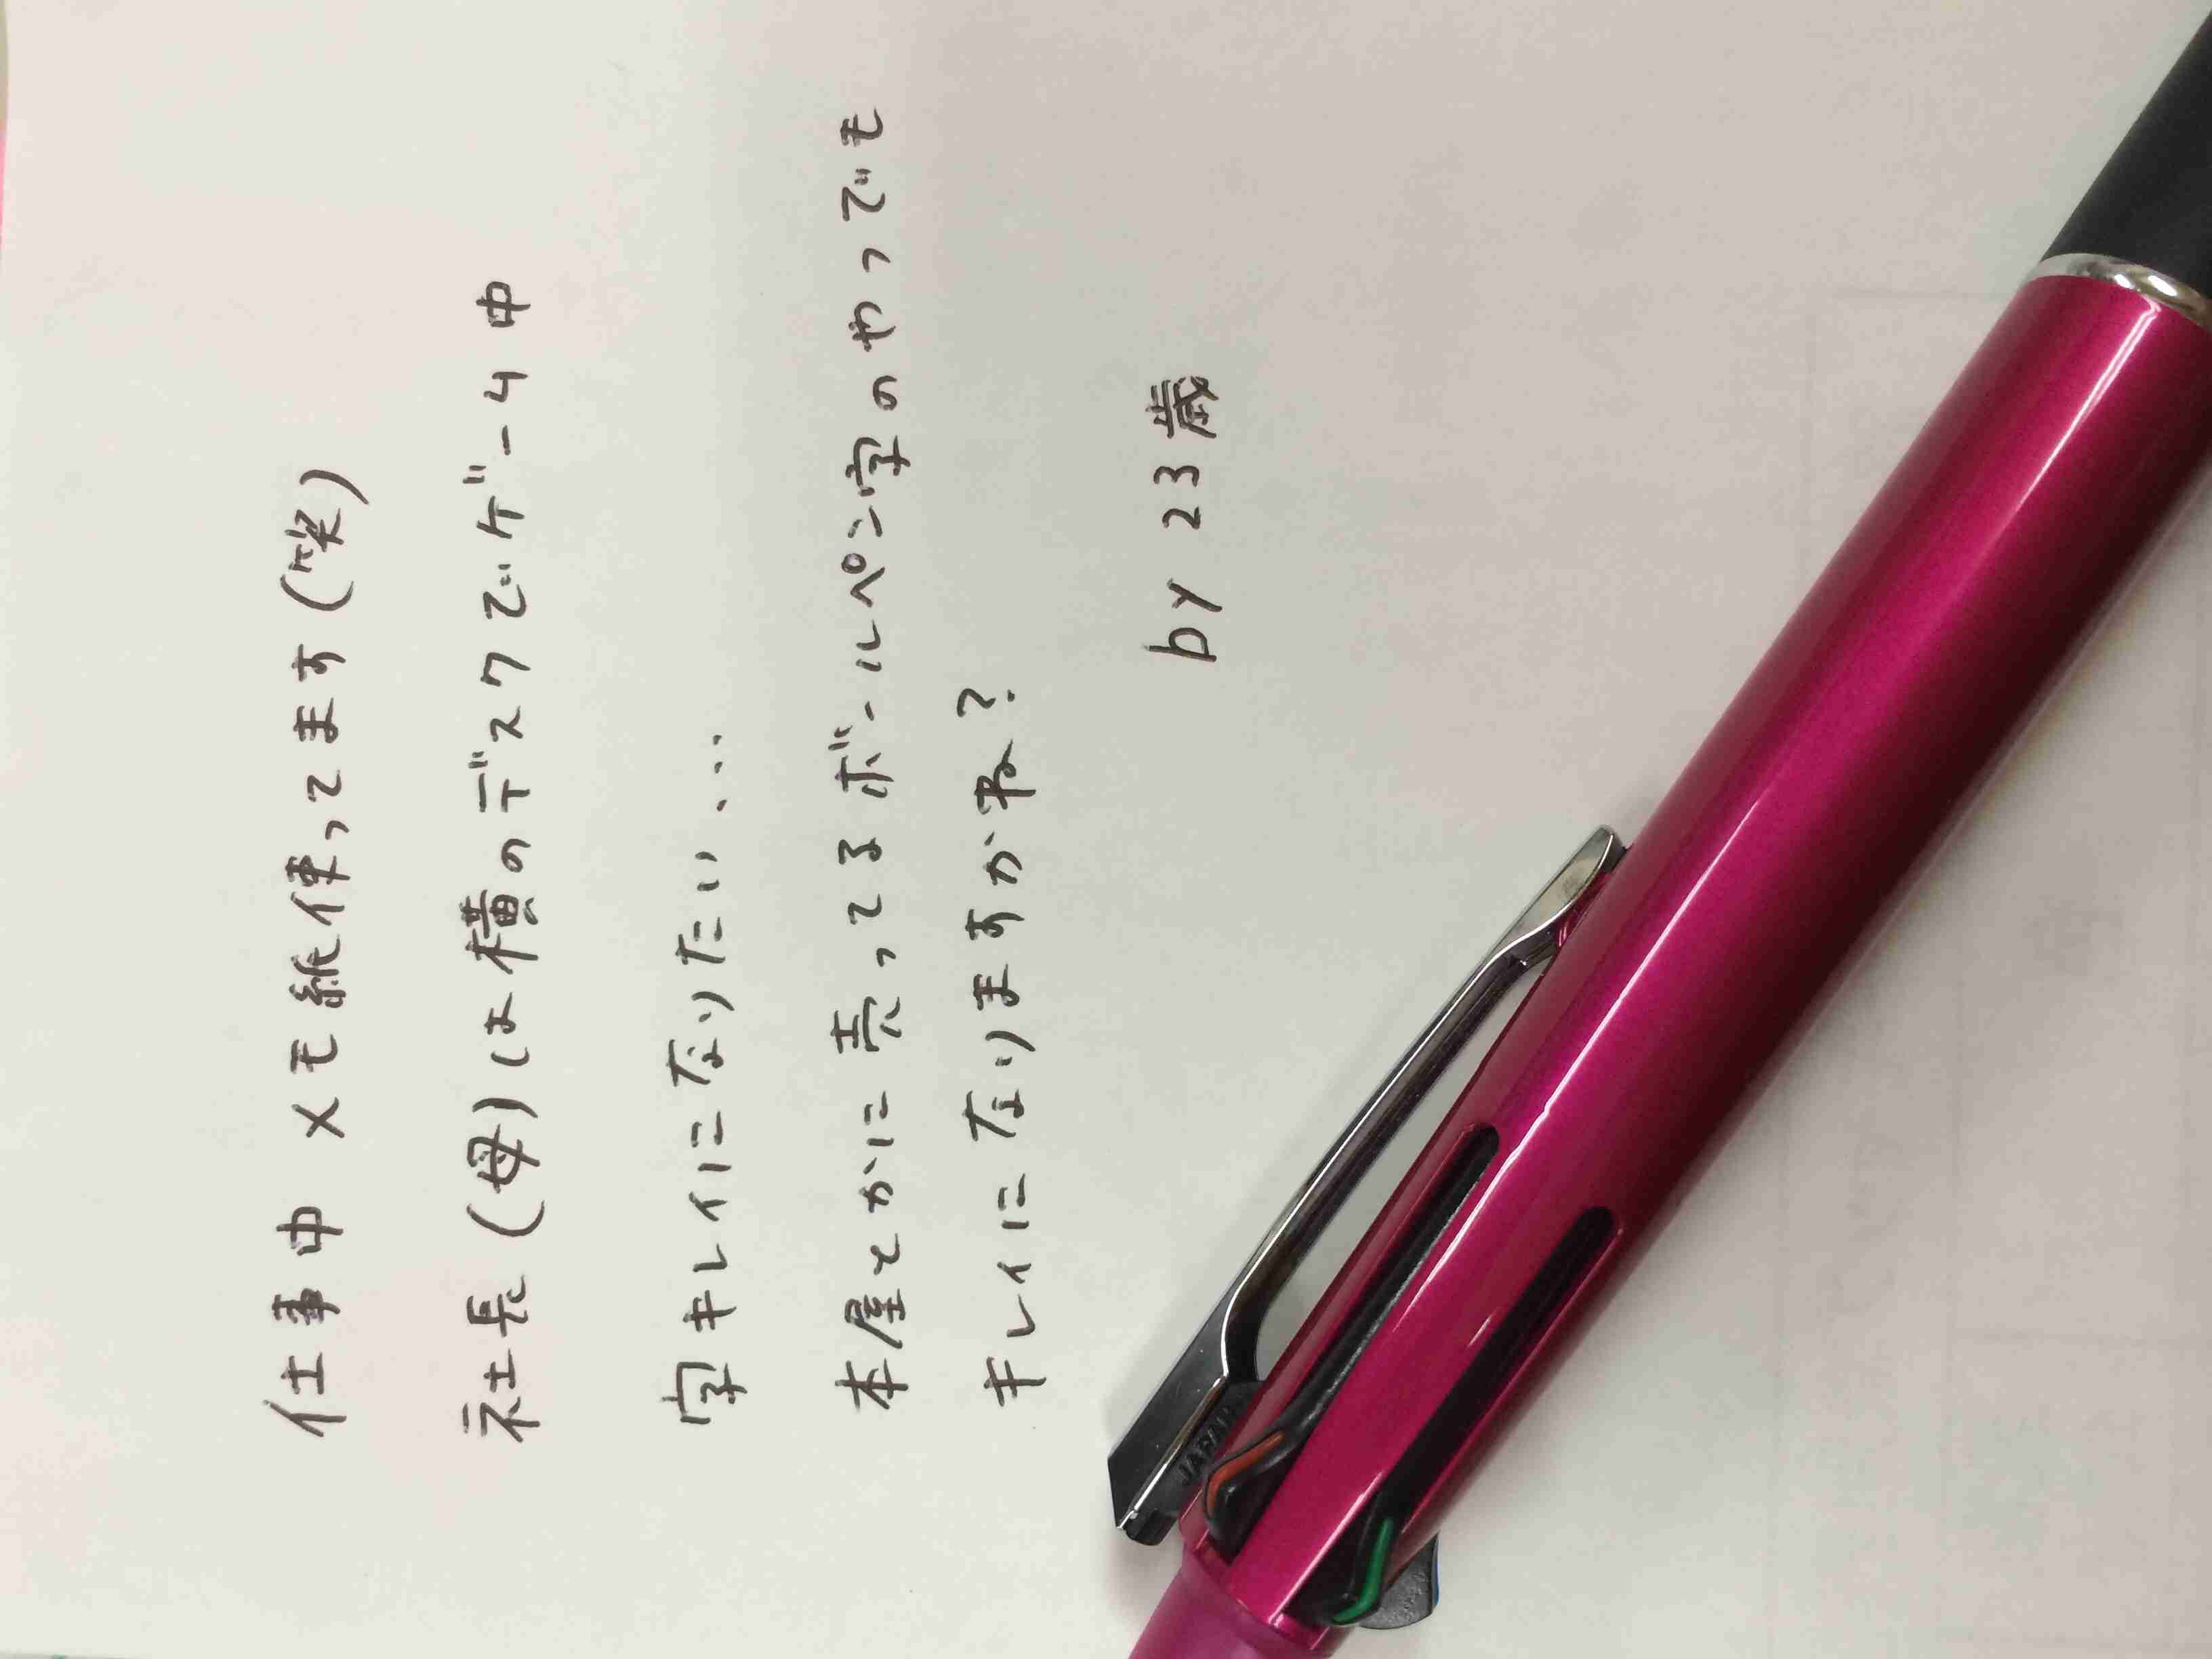 仕事中 メモ紙使ってます(笑)
社長(母)は横のデスクでゲーム中
字キレイになりたい...
本屋とかに売ってるボールペン字のやつでも
キレイになりますかね?
by 23歳
JAPAN